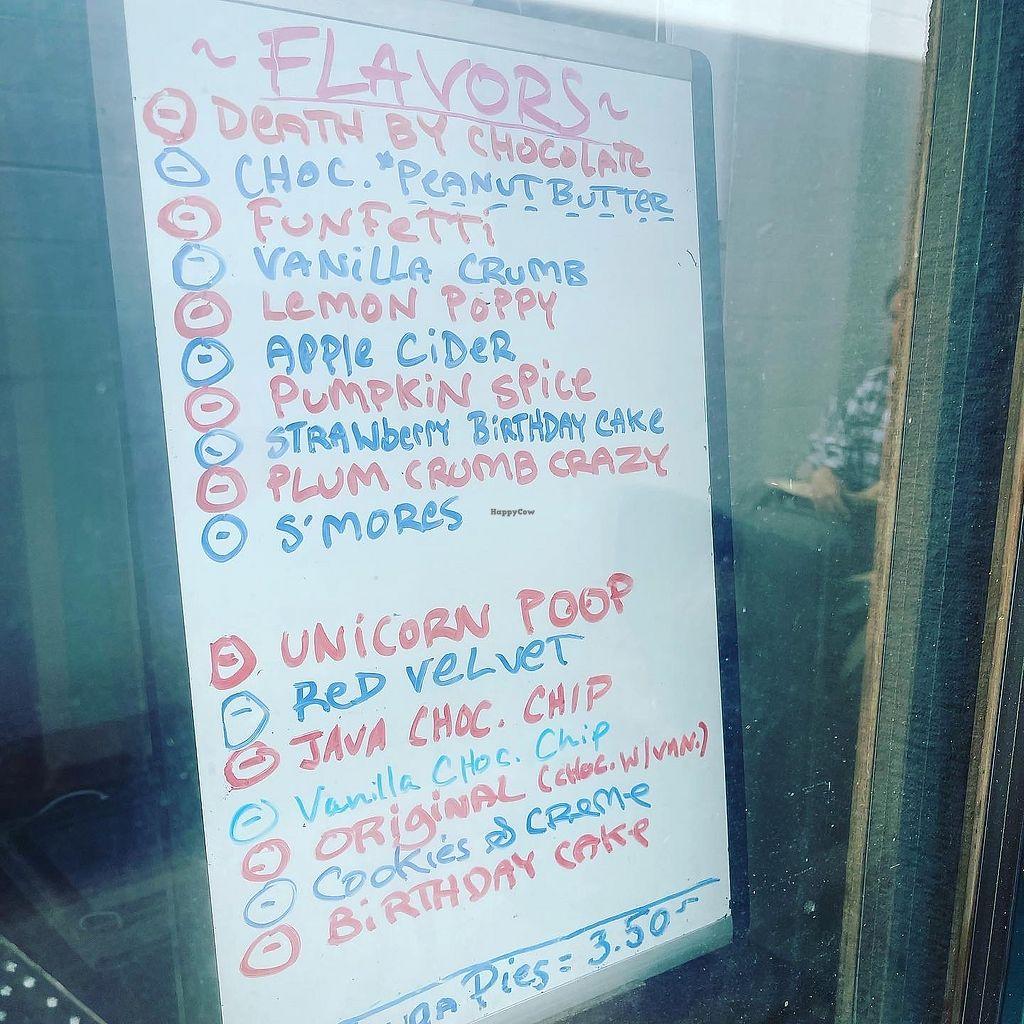 ~ FLAVORS ~
DEATH BY CHOCOLATE
CHOC. *PEANUT BUTTER
FUNFETTI
VANILLA CRUMB
LEMON POPPY
APPLE CIDER
PUMPKIN SPICE
STRAWBERRY BIRTHDAY CAKE
PLUM CRUMB CRAZY
S'MORES
HappyCow
UNICORN POOP
RED VELVET
JAVA CHOC. CHIP
Vanilla CHOC. Chip
ORIGINAL (CHOC. W/VAN.)
COOKIES & CREME
BIRTHDAY CAKE
Pies = 3.50~